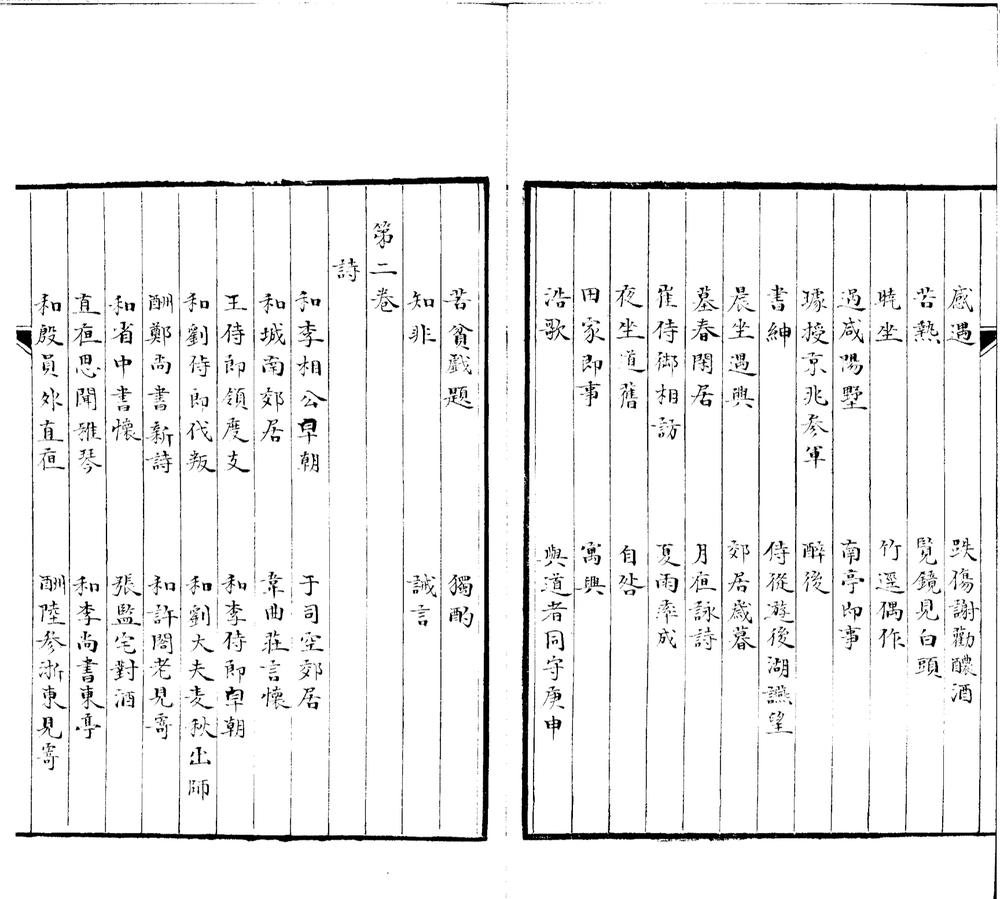 感遇　跌傷謝勸醲酒
苦熱　覽鏡見白頭
曉坐　竹逕偶作
過咸陽墅　南亭即事
璩授京兆參軍　醉後
書紳　侍從遊後湖讌望
晨坐過興　郊居歲暮
墓春閑居　月夜詠詩
崔侍御相訪　夏雨率成
夜坐道舊　自咎
田家即事　寓興
浩歌　與道者同守庚申
苦貧戲題　獨酌
知非　誡言
第二卷
詩
和李相公早朝　于司空郊居
和城南郊居　韋曲莊言懷
王侍郎領度支　和李侍郎早朝
和劉侍郎代叛　和劉大夫麦秋出師
酬鄭尚書新詩　和許閣老見寄
和省中書懷　張監宅對酒
直夜思聞雅琴　和李尚書東亭
和殷員外直夜　酬陸參浙東見寄